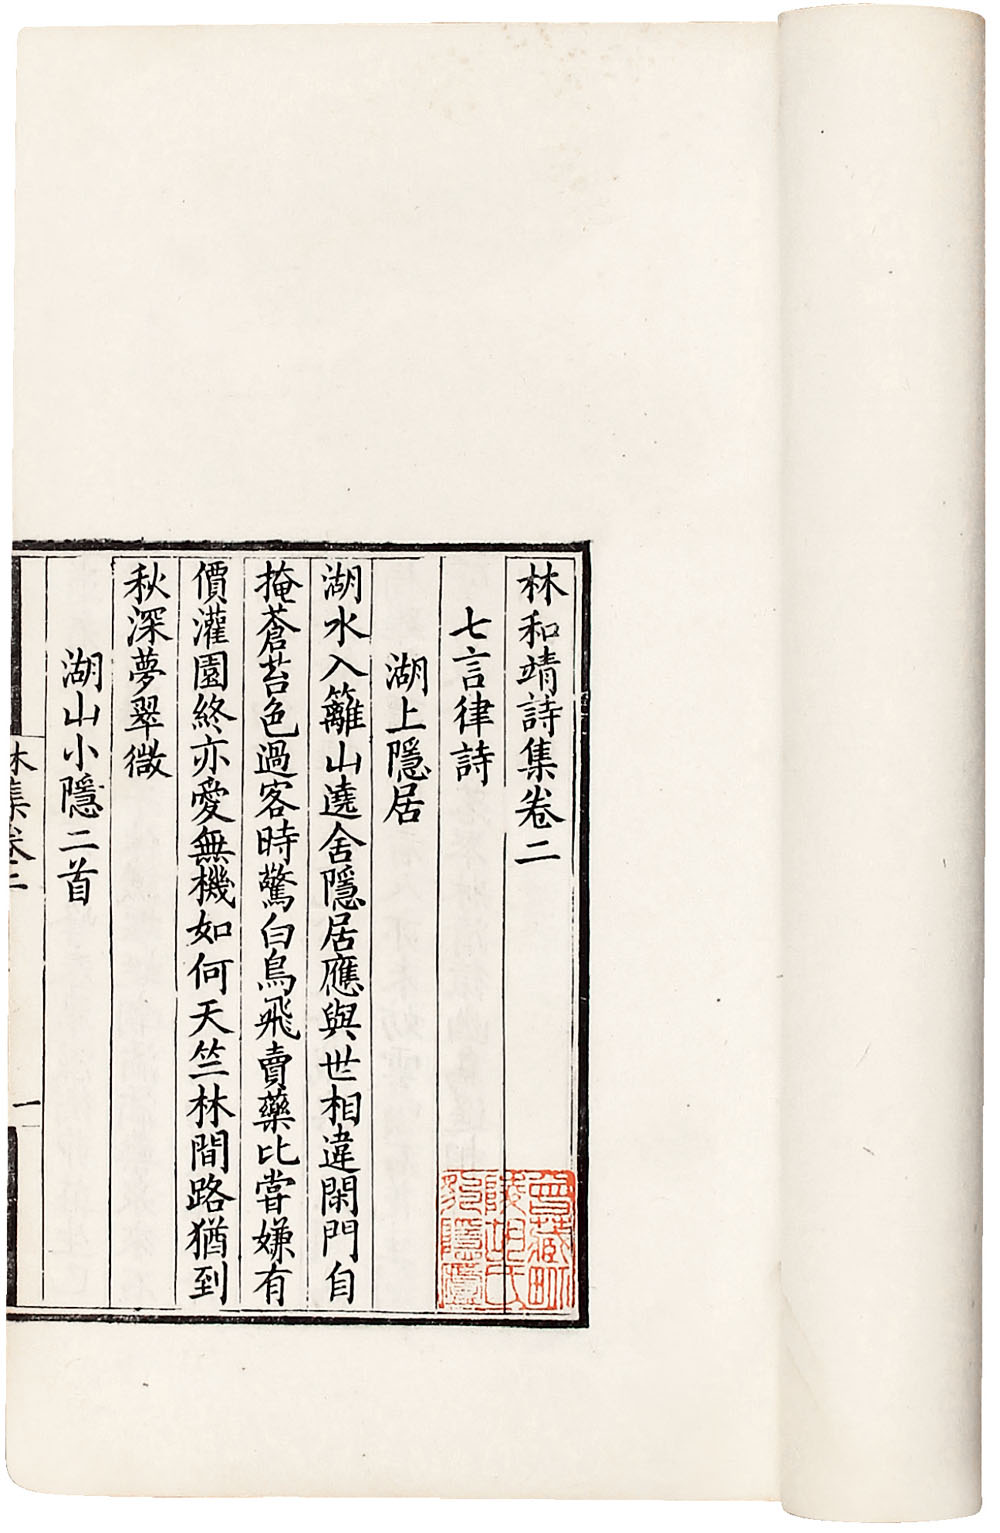 林和靖詩集卷二
七言律詩
湖上隱居
湖水入籬山遶舍隱居應與世相違閑門自
掩蒼苔色過客時驚白鳥飛賣藥比嘗嫌有
價灌園終亦愛無機如何天竺林間路猶到
秋深夢翠微
湖山小隱二首
林集卷二
一
曾藏毗
陵胡氏
豹隱廬